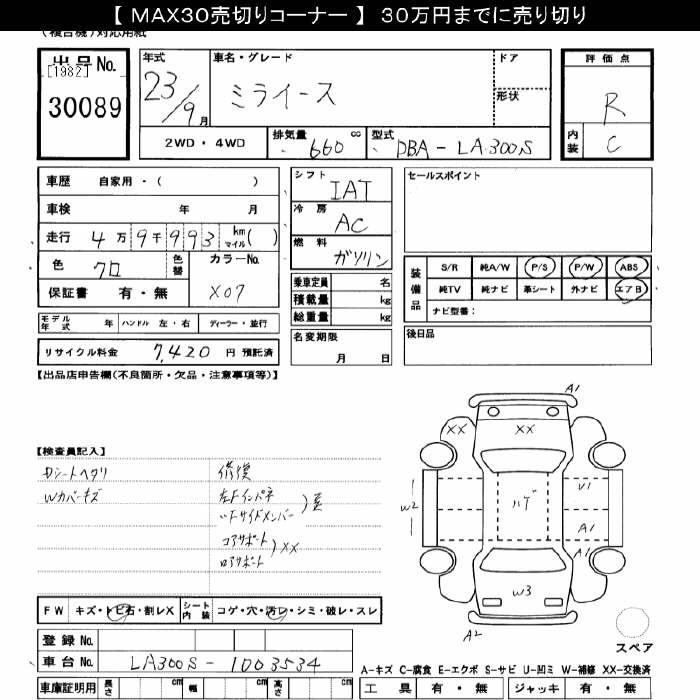 【 MAX30売切りコーナー 】 30万円までに売り切り
(複合機)対応用紙
出品No.
[1982]
30089
年式
23/9月
車名・グレード
ミライース
ドア
形状
評価点
R
内装
C
2WD・4WD
排気量
660 cc
型式
DBA-LA300S
車歴 自家用・( )
車検 年 月
走行 4万9千993 km マイル( )
色 クロ
色替
カラーNo.
X07
保証書 有・無
シフト
IAT
冷房
AC
燃料
ガソリン
乗車定員 名
積載量 kg
総重量 kg
セールスポイント
装備品
S/R 純A/W P/S P/W ABS
純TV 純ナビ 革シート 外ナビ エアB
ナビ型番:
モデル年式 年 ハンドル 左・右 ディーラー・並行
リサイクル料金 7,420 円 預託済
名変期限
月 日
後日品
【出品店申告欄(不良箇所・欠品・注意事項等)】
【検査員記入】
Dシートヘタリ
Wカバーキズ
修復
左Fインパネ
〃Fサイドメンバー
歪
コアサポート
ロアサポート
XX
A1
XX
XX
W2
ハゲ
U1
A1
A1
W3
A2
スペア
FW キズ・トビ石・割レX
シート内装 コゲ・穴・汚レ・シミ・破レ・スレ
登録No.
車台No. LA300S-1003534
車庫証明用 長さ cm 幅 cm 高さ cm
A-キズ C-腐食 E-エクボ S-サビ U-凹ミ W-補修 XX-交換済
工具 有・無 ジャッキ 有・無